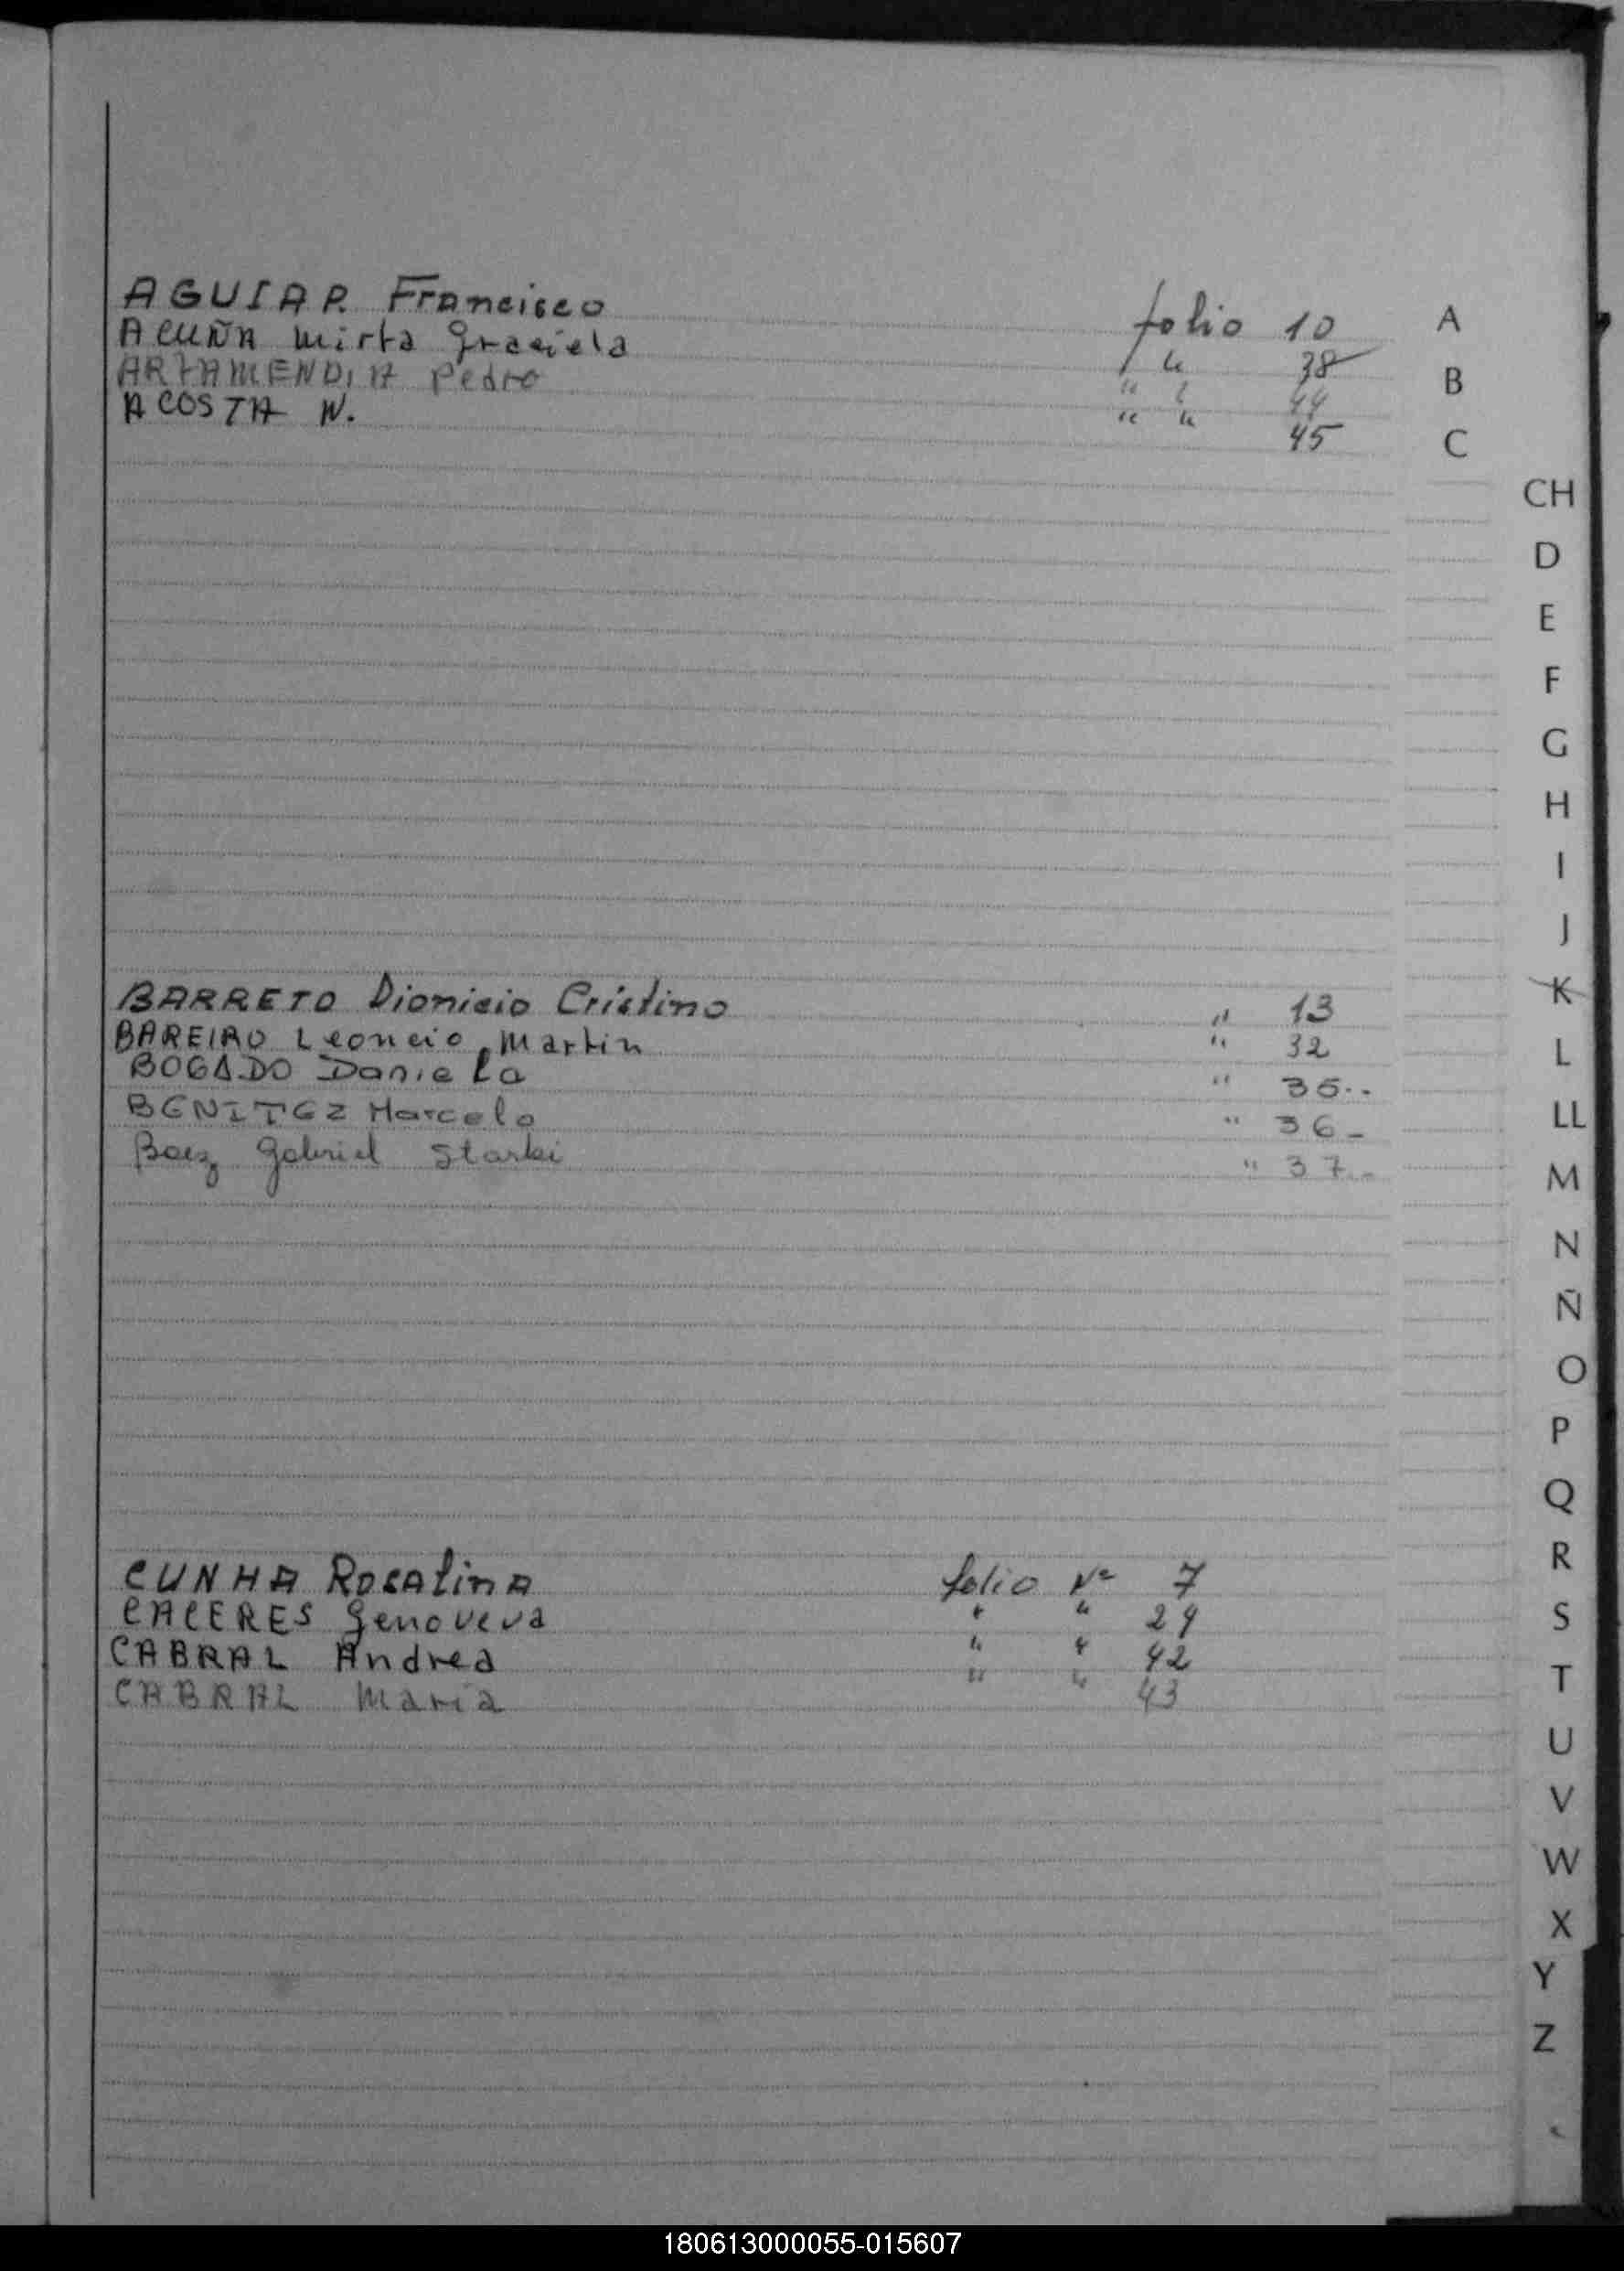 AGUIAR Francisco folio 10
ACUÑA Mirta Graciela " " 38
ARTAMENDIA Pedro " " 44
ACOSTA N. " " 45
BARRETO Dionicio Cristino " 13
BAREIRO Leoncio Martin " 32
BOGADO Daniela " 35..
BENITEZ Marcelo " 36-
Baez Gabriel " 37.-
CUNHA Rosalina folio Nº 7
CACERES Genoveva " " 29
CABRAL Andrea " " 42
CABRAL Maria " " 43
A
B
C
CH
D
E
F
G
H
I
J
K
L
LL
M
N
Ñ
O
P
Q
R
S
T
U
V
W
X
Y
Z
180613000055-015607